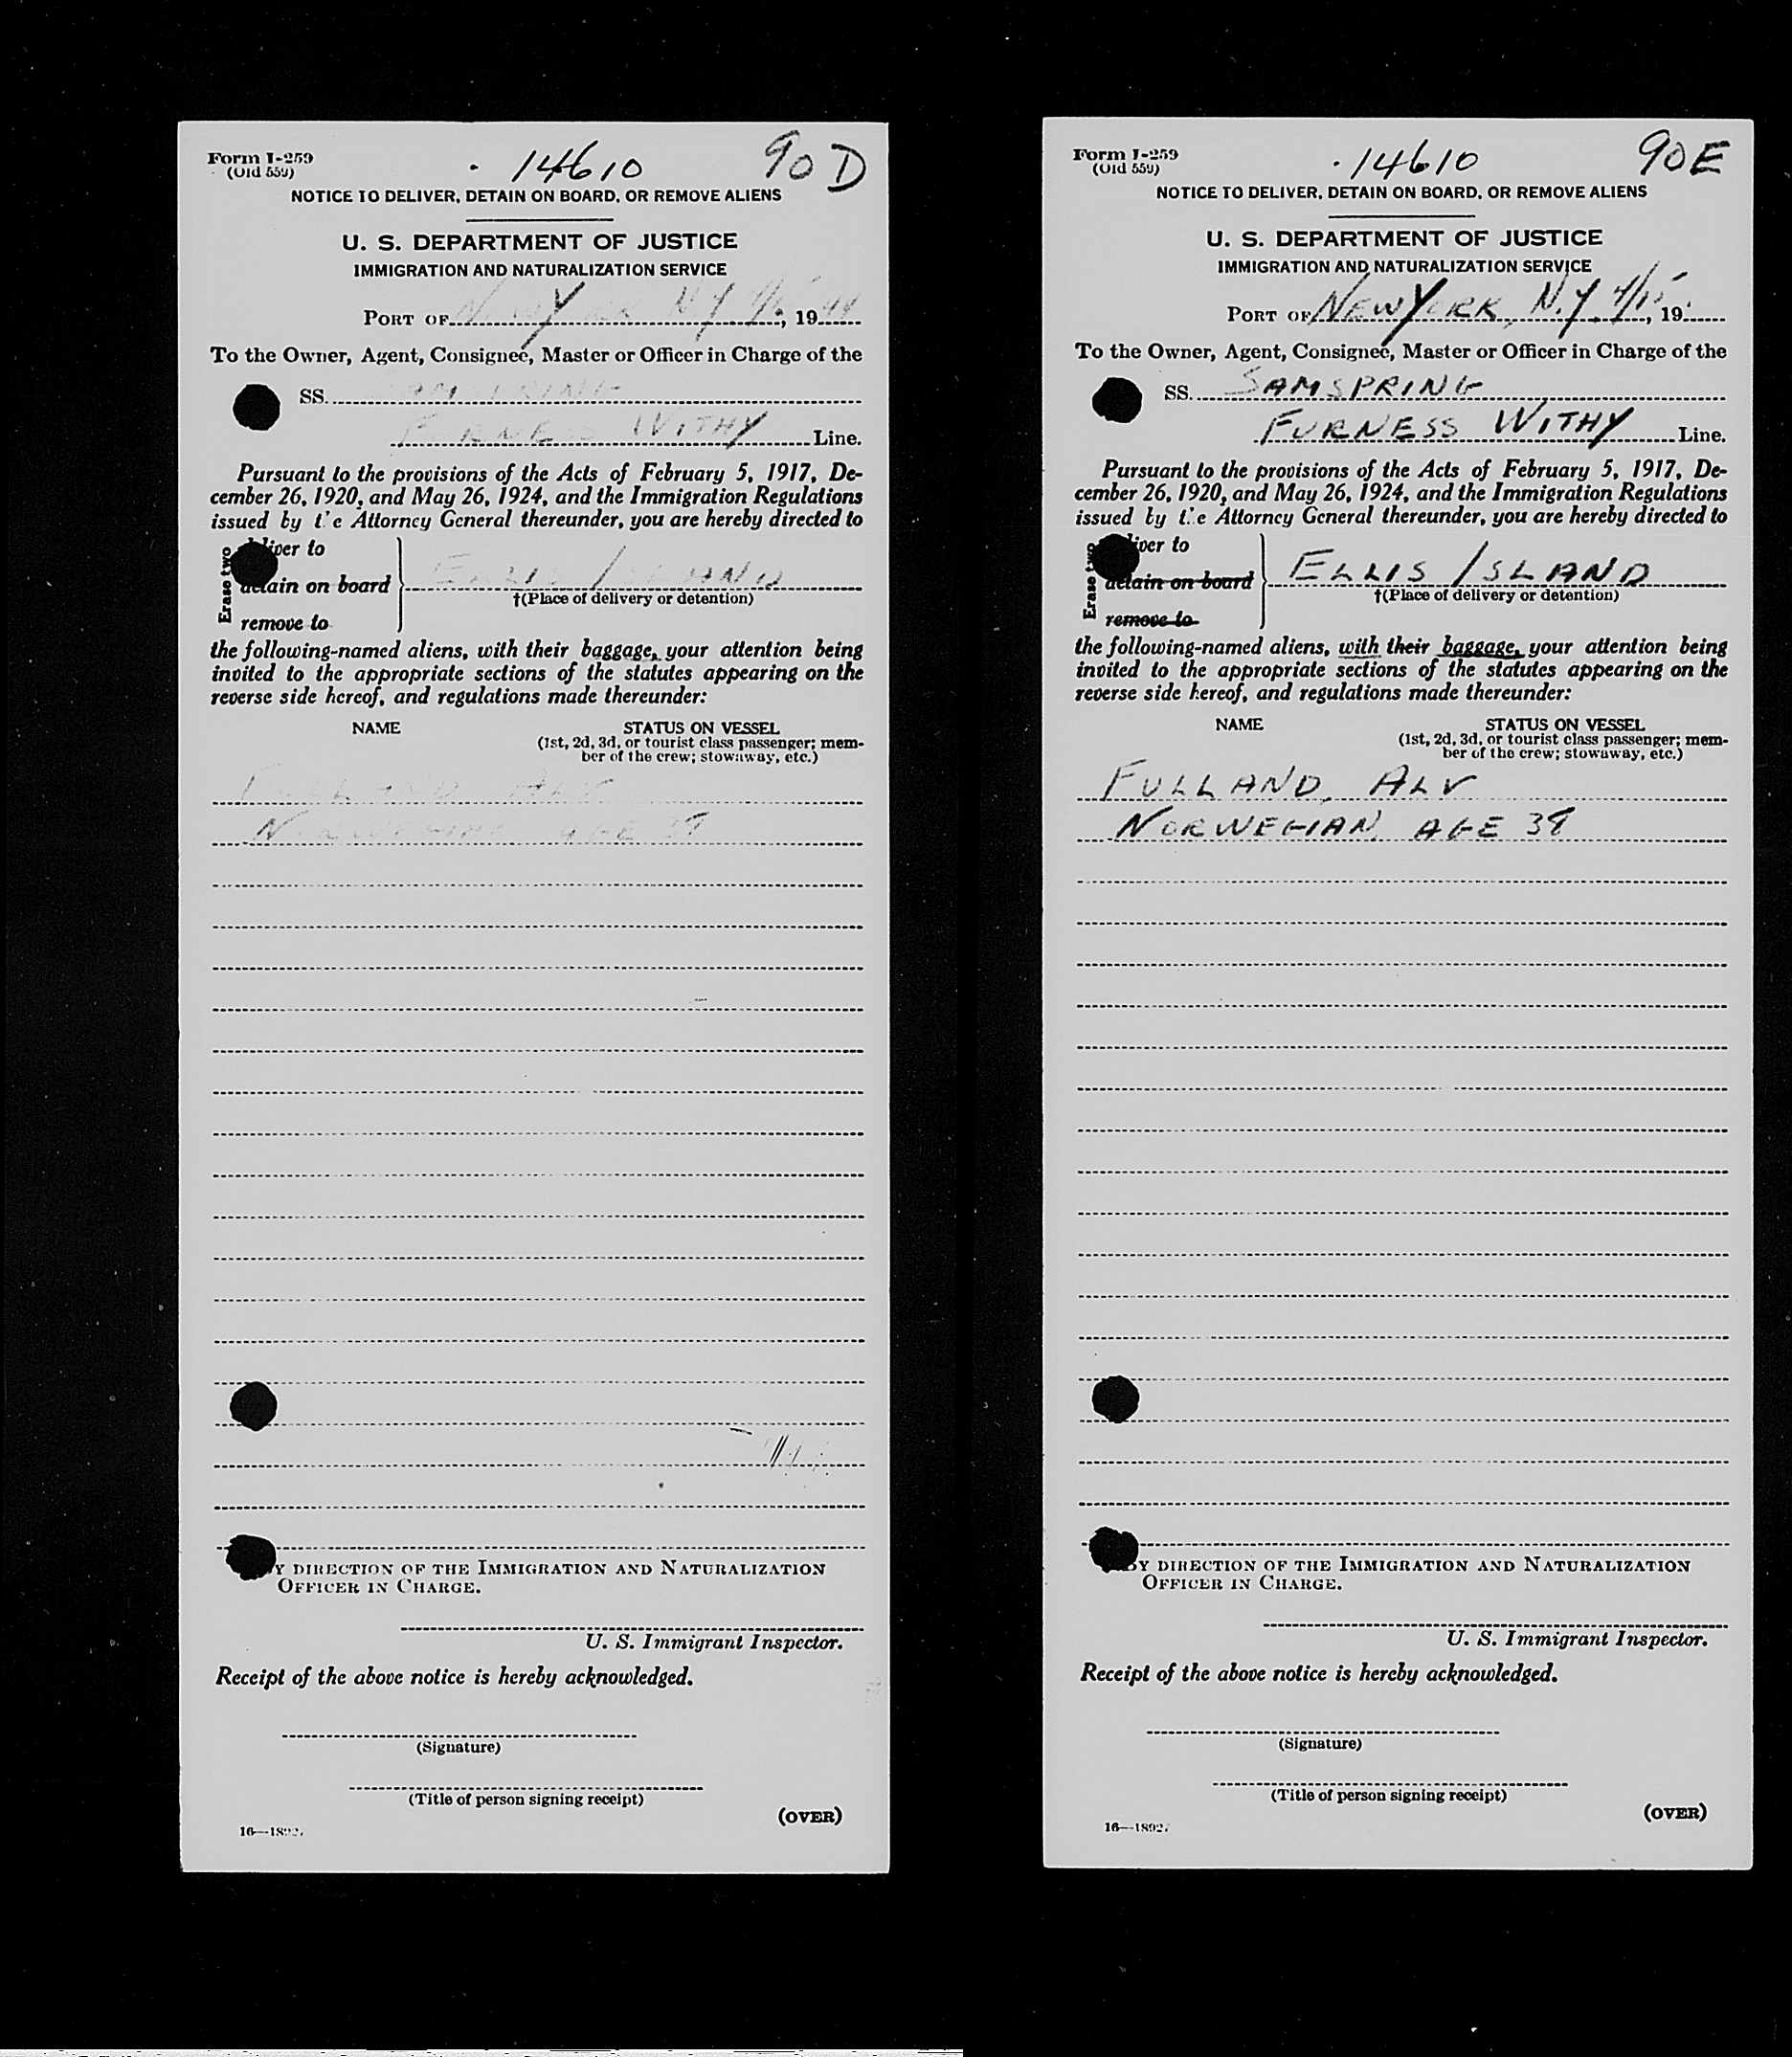 Form I-259
(Old 559)
14610
90 D
NOTICE TO DELIVER, DETAIN ON BOARD, OR REMOVE ALIENS
U. S. DEPARTMENT OF JUSTICE
IMMIGRATION AND NATURALIZATION SERVICE
PORT OF NEW YORK N.Y. 4/15, 1944
To the Owner, Agent, Consignee, Master or Officer in Charge of the
SS. SAMSPRING
FURNESS WITHY Line.
Pursuant to the provisions of the Acts of February 5, 1917, De-
cember 26, 1920, and May 26, 1924, and the Immigration Regulations
issued by the Attorney General thereunder, you are hereby directed to
Erase two
deliver to
detain on board
remove to
ELLIS ISLAND
†(Place of delivery or detention)
the following-named aliens, with their baggage, your attention being
invited to the appropriate sections of the statutes appearing on the
reverse side hereof, and regulations made thereunder:
NAME STATUS ON VESSEL
(1st, 2d, 3d, or tourist class passenger; mem-
ber of the crew; stowaway, etc.)
FULLAND ALV
NORWEGIAN AGE
BY DIRECTION OF THE IMMIGRATION AND NATURALIZATION
OFFICER IN CHARGE.
U. S. Immigrant Inspector.
Receipt of the above notice is hereby acknowledged.
(Signature)
(Title of person signing receipt)
(OVER)
16—18927
Form I-259
(Old 559)
14610
90E
NOTICE TO DELIVER, DETAIN ON BOARD, OR REMOVE ALIENS
U. S. DEPARTMENT OF JUSTICE
IMMIGRATION AND NATURALIZATION SERVICE
PORT OF NEW YORK, N.Y. 4/15, 19
To the Owner, Agent, Consignee, Master or Officer in Charge of the
SS. SAMSPRING
FURNESS WITHY Line.
Pursuant to the provisions of the Acts of February 5, 1917, De-
cember 26, 1920, and May 26, 1924, and the Immigration Regulations
issued by the Attorney General thereunder, you are hereby directed to
Erase two
deliver to
detain on board
remove to
ELLIS ISLAND
†(Place of delivery or detention)
the following-named aliens, with their baggage, your attention being
invited to the appropriate sections of the statutes appearing on the
reverse side hereof, and regulations made thereunder:
NAME STATUS ON VESSEL
(1st, 2d, 3d, or tourist class passenger; mem-
ber of the crew; stowaway, etc.)
FULLAND, ALV
NORWEGIAN, AGE
BY DIRECTION OF THE IMMIGRATION AND NATURALIZATION
OFFICER IN CHARGE.
U. S. Immigrant Inspector.
Receipt of the above notice is hereby acknowledged.
(Signature)
(Title of person signing receipt)
(OVER)
16—18927